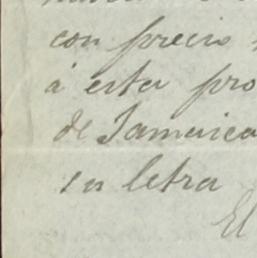 con precio
á esta pro
de Jamaica
su letra
El